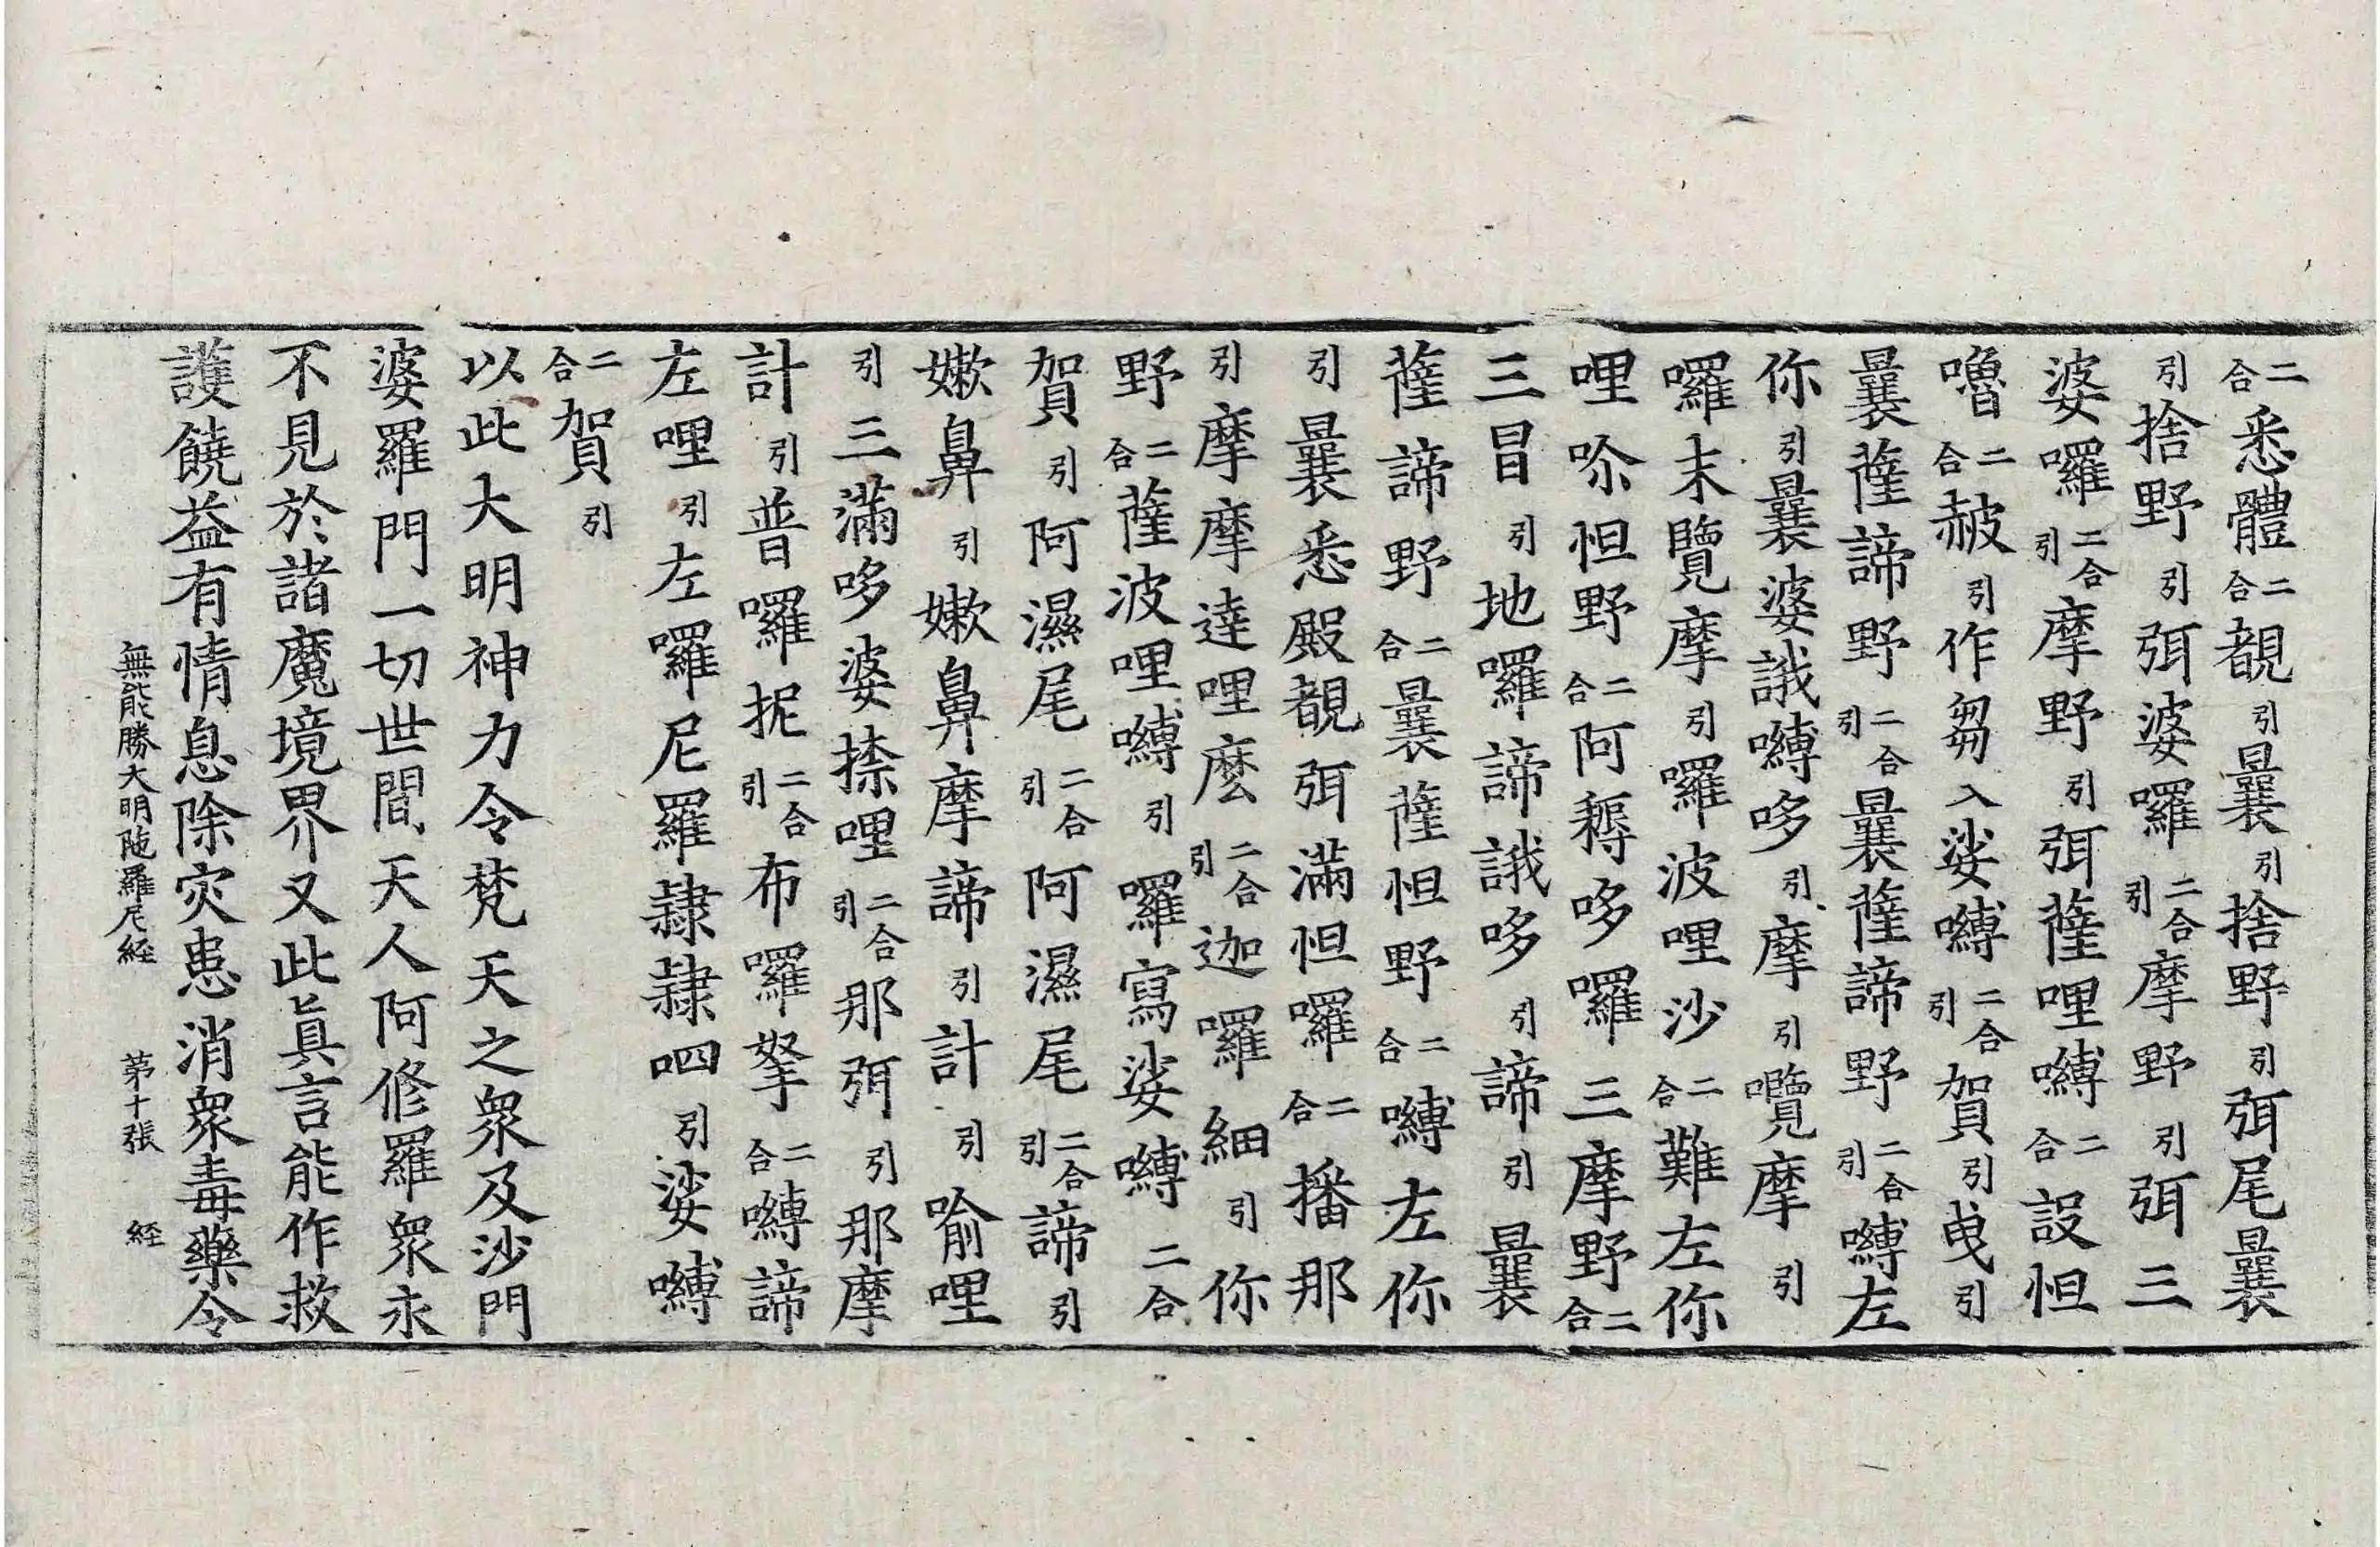 二合悉體二合覩引曩引捨野引弭尾曩
引捨野引弭婆囉二合引摩野引弭三
婆囉二合引摩野引弭薩哩嚩二合設怛
嚕二合赧引作芻入娑嚩二合引賀引曳引
曩薩諦野二合引曩薩諦野二合引嚩左
你引曩婆誐嚩哆引摩引囕摩引
囉末覽摩引囉波哩沙二合難左你
哩吤怛野二合阿耨哆囉三摩野二合
三冒引地囉諦誐哆引諦引曩
薩諦野二合曩薩怛野二合嚩左你
引曩悉殿覩弭滿怛囉二合播那
引摩摩達哩麼二合引迦囉細引你
野二合薩波哩嚩引囉寫娑嚩二合
賀引阿濕尾二合引阿濕尾二合引諦引
嫰鼻引嫰鼻摩諦引計引喻哩
引三滿哆婆捺哩二合引那弭引那摩
計引普囉抳二合引布囉拏二合嚩諦
左哩引左囉尼羅隷隷呬引娑嚩
二合賀引
以此大明神力令梵天之衆及沙門
婆羅門一切世間天人阿修羅衆永
不見於諸魔境界又此眞言能作救
護饒益有情息除灾患消衆毒藥令
無能勝大明陁羅尼経 苐十張 経